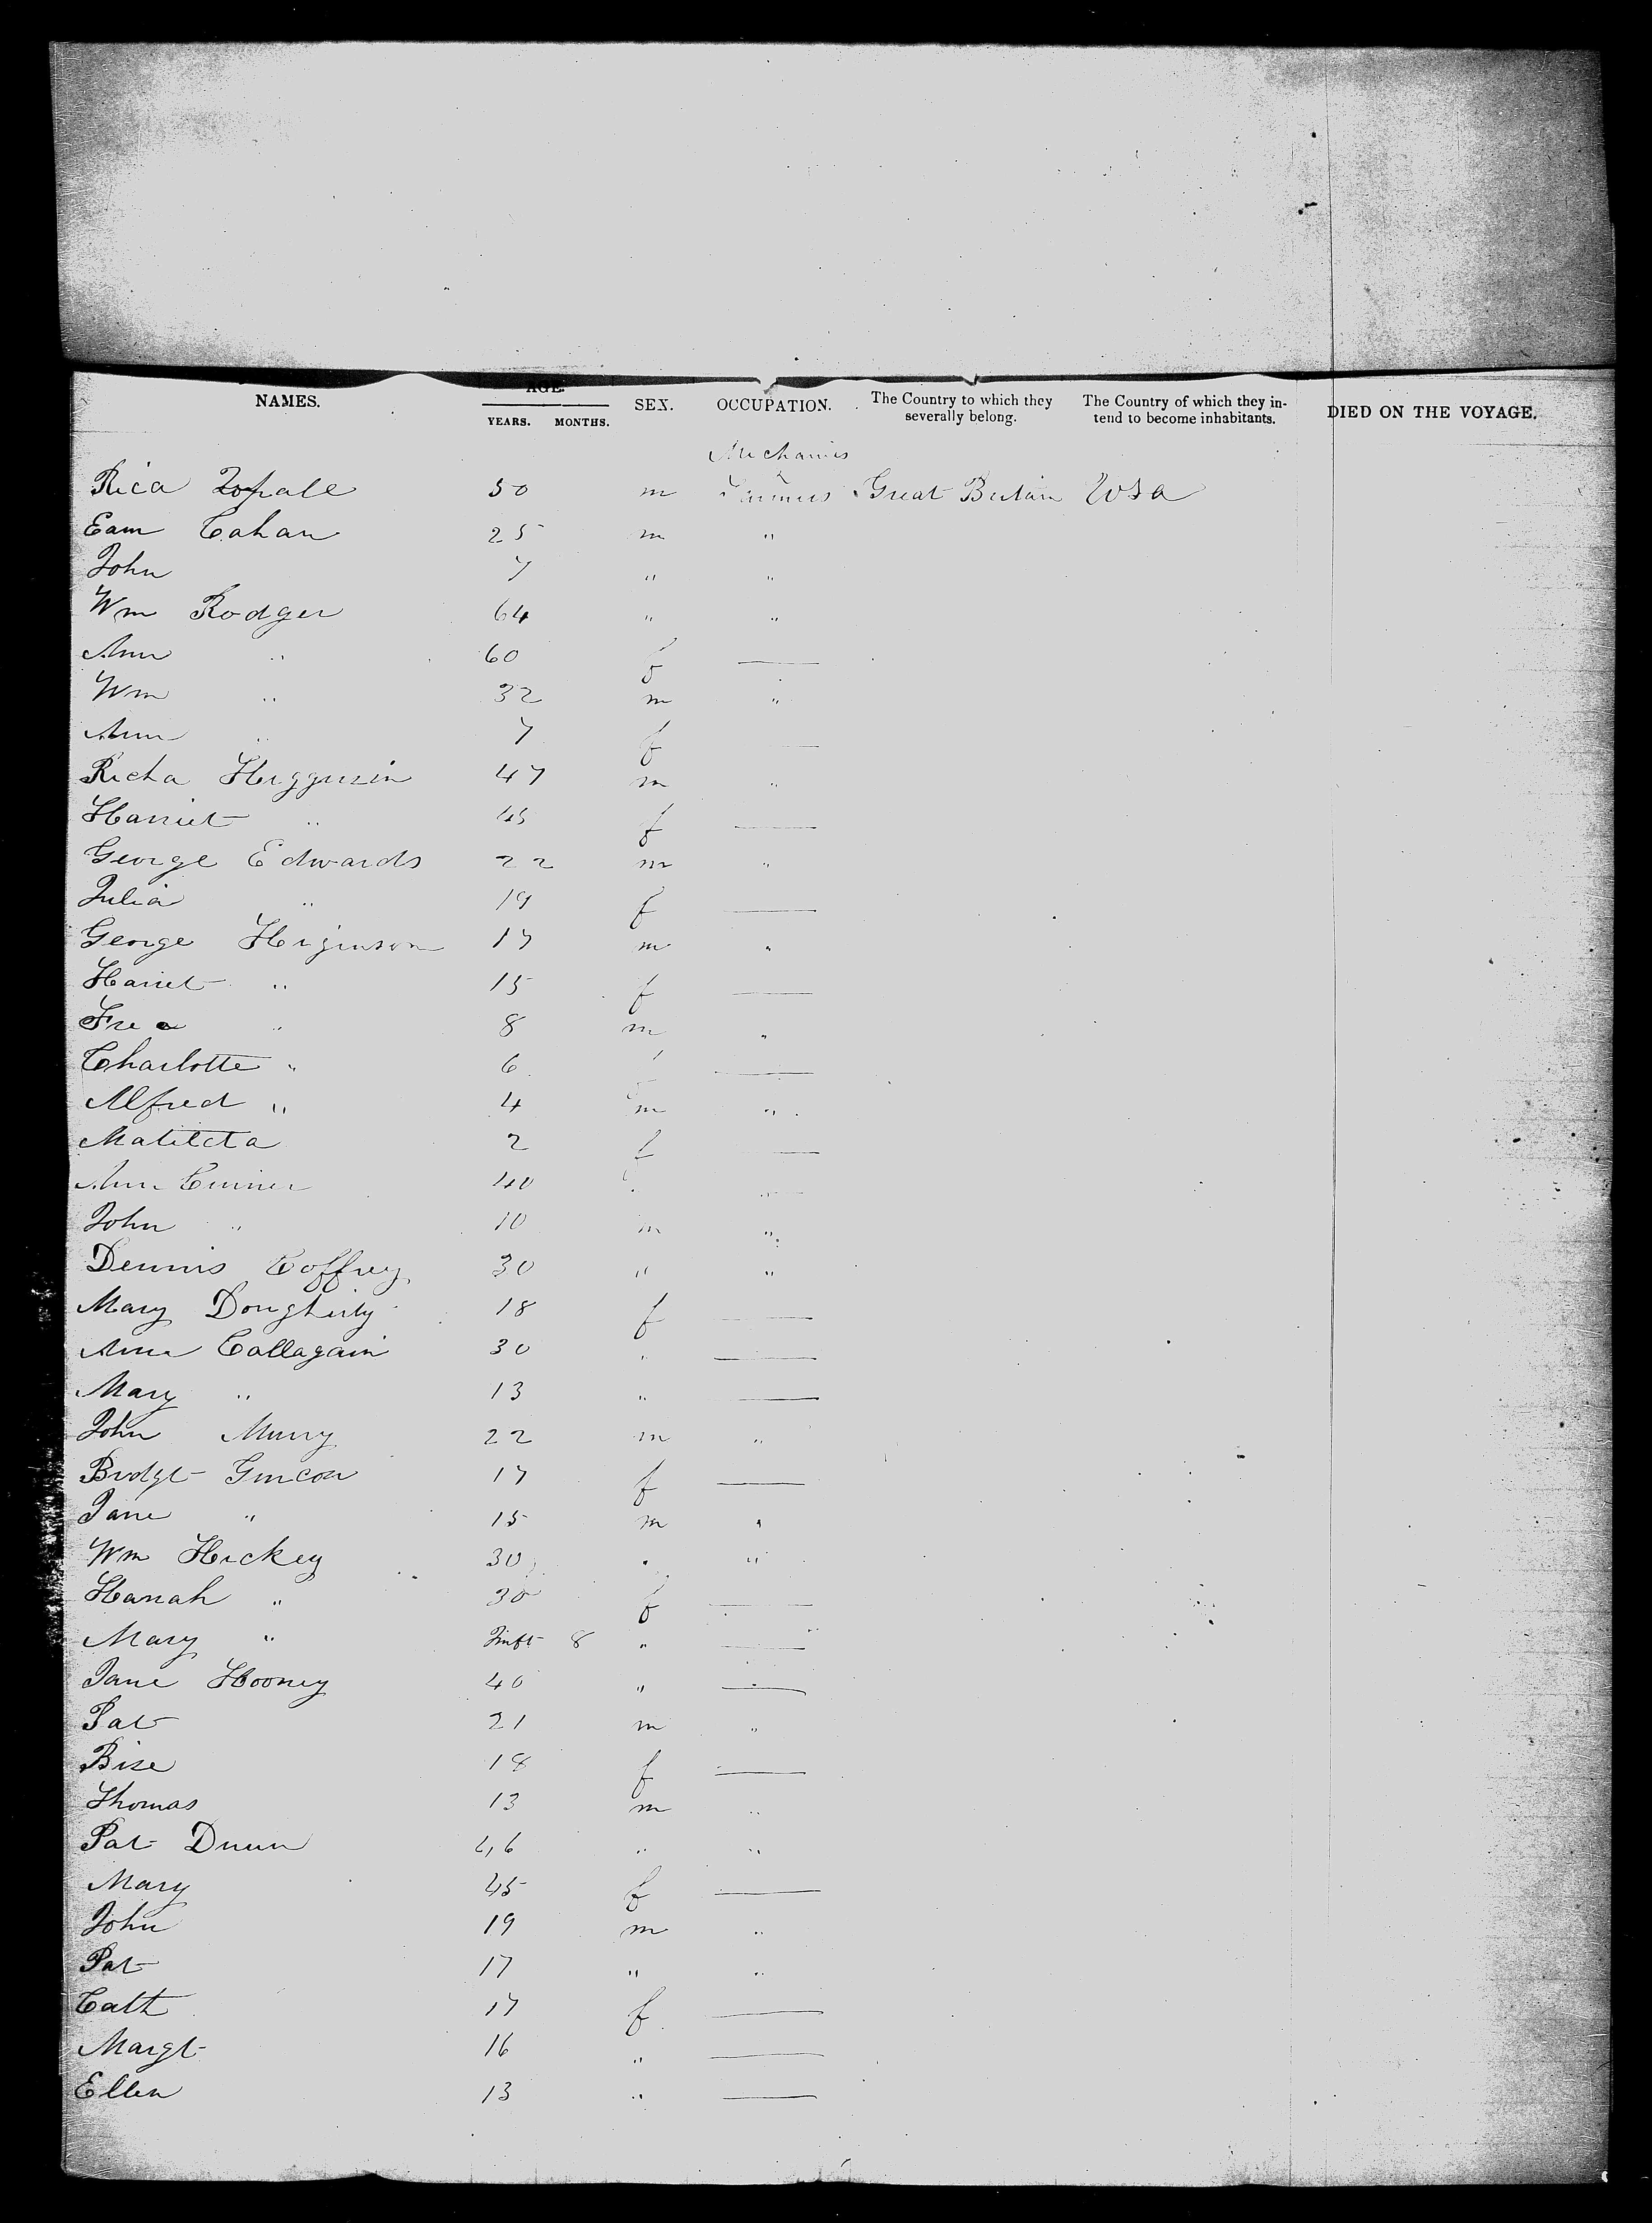 AGE.
NAMES. SEX. OCCUPATION. The Country to which they severally belong. The Country of which they intend to become inhabitants. DIED ON THE VOYAGE.
YEARS. MONTHS.
Mechanics
Rica 50 m Farmers Great Britain USA
Eam Cahan 25 m "
John 7 " "
Wm Rodger 64 " "
Ann " 60 f —
Wm " 32 m "
Ann " 7 f —
Richa Higginsin 47 m "
Harriet " 45 f —
George Edwards 22 m "
Julia " 19 f —
George Higinson 17 m "
Hariet " 15 f —
Fred " 8 m "
Charlotte " 6 f —
Alfred " 4 m "
Matilda 2 f —
Ann 40 " —
John " 10 m "
Dennis Coffrey 30 " "
Mary Dougherty 18 f —
Anna Callagain 30 " —
Mary " 13 " —
John Murry 22 m "
Bridgt 17 f —
Jane " 15 m "
Wm Hickey 30 " "
Hanah " 30 f —
Mary " Inft 8 " —
Jane Hooney 40 " —
Pat 21 m "
Bise 18 f —
Thomas 13 m "
Pat Dunn 46 " "
Mary 45 f —
John 19 m "
Pat 17 " "
Cath 17 f —
Margt 16 " —
Ellen 13 " —